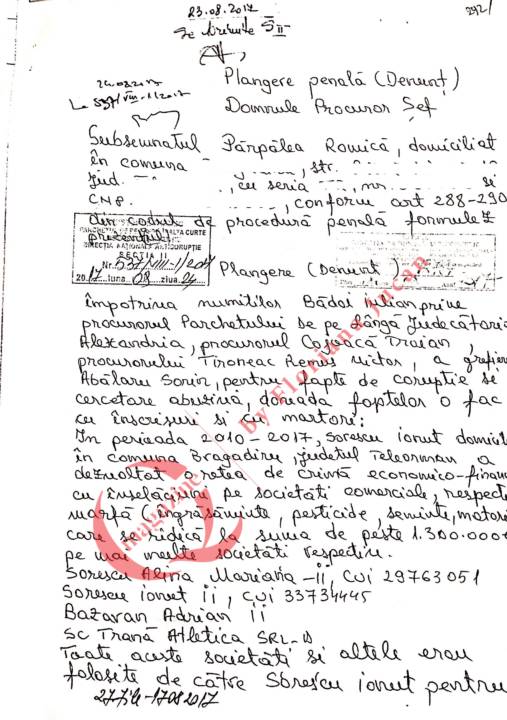 23.08.2017
se trimite SII
292/
Plangere penală (Denunț)
Domnule Procuror Șef
Subsemnatul Pârpălea Romică, domiciliat
în comuna , str.
jud. , cu seria , nr. si
CNP. , conform art 288-290
din codul de procedură penală formulez
prezentul:
DIRECȚIA NAȚIONALĂ ANTICORUPȚIE
SECȚIA II
Nr. 537/VIII-1/2017
2017 luna 08 ziua 24
Plangere (Denunț)
împotriva numitilor Bădoi Iulian prim
procurorul Parchetului de pe lângă Judecătoria
Alexandria, procurorul Cojoacă Traian,
procurorului Tironeac Remus Victor, a grefieru
Abălaru Sorin, pentru fapte de coruptie si
cercetare abuzivă, dovada faptelor o fac
cu înscrisuri si cu martori:
In perioada 2010-2017, Sorescu ionut domicil
în comuna Bragadiru, judetul Teleorman a
dezvoltat o retea de crimă economico-financ
cu înselăciuni pe societăti comerciale, respecti
marfă (îngrăsăminte, pesticide, seminte, motori
care se ridică la suma de peste 1.300.000
pe mai multe societăti respectiv.
Sorescu Alina Mariana - ii, cui 29763051
Sorescu ionut ii, cui 33734445
Bazavan Adrian ii
SC Trană Atletica SRL-D
Toate aceste societăti si altele erau
folosite de către Sorescu ionut pentru
27 file - 17.08.2017
magazine
by Floriana Jucan